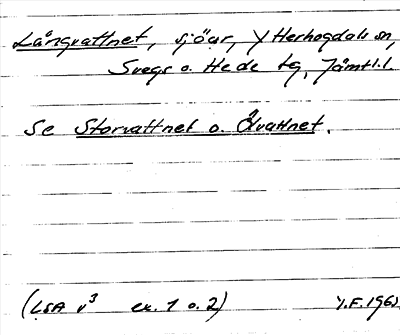 Långvattnet, sjöar, Y Herhogdals sn,
Svegs o. Hede tg, Jämtl.l.
Se Storvattnet o. Älvattnet.
(LSA v³ ex. 1 o. 2) Y.F. 196